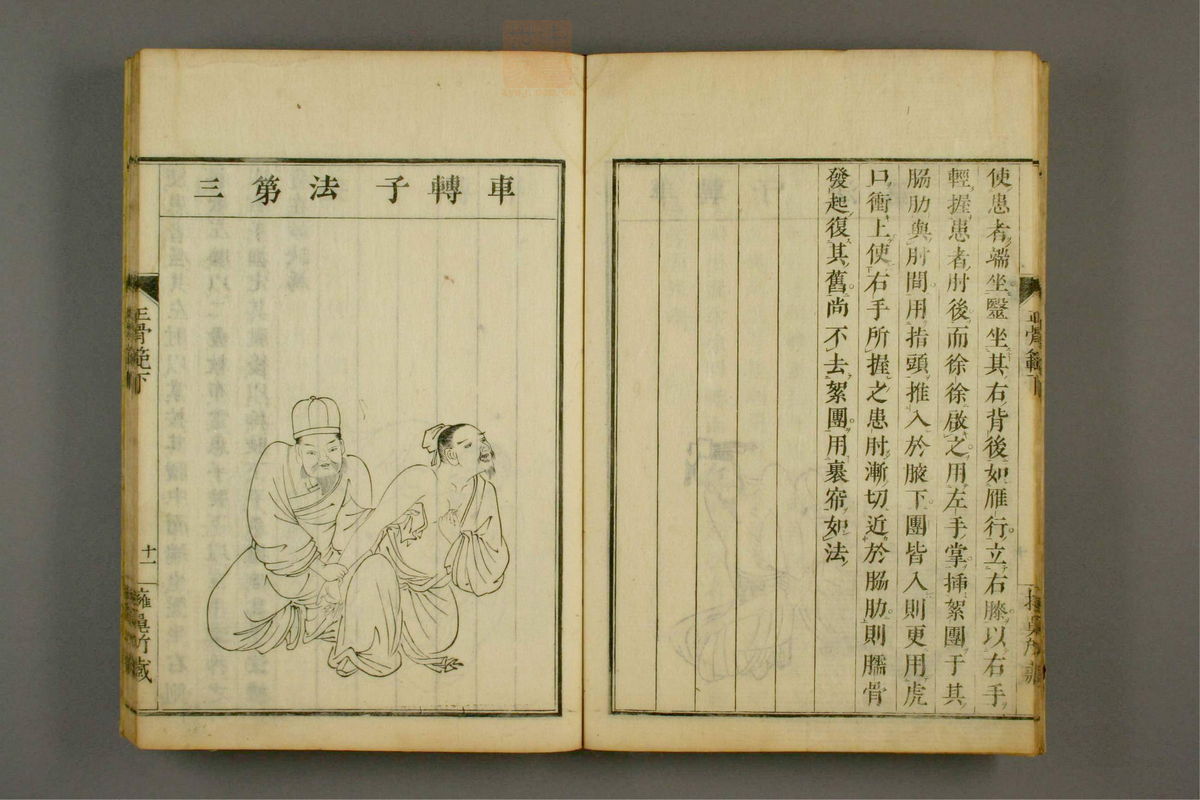 使患者端坐毉坐其右背後如雁行立右膝以右手
輕握患者肘後而徐徐啟之用左手掌揷絮團于其
脇肋與肘間用指頭推入於腋下團皆入則更用虎
口衝上使右手所握之患肘漸切近於脇肋則臑骨
發起復其舊尚不去絮團用裹帘如法
車轉子法第三
正骨範下
十一